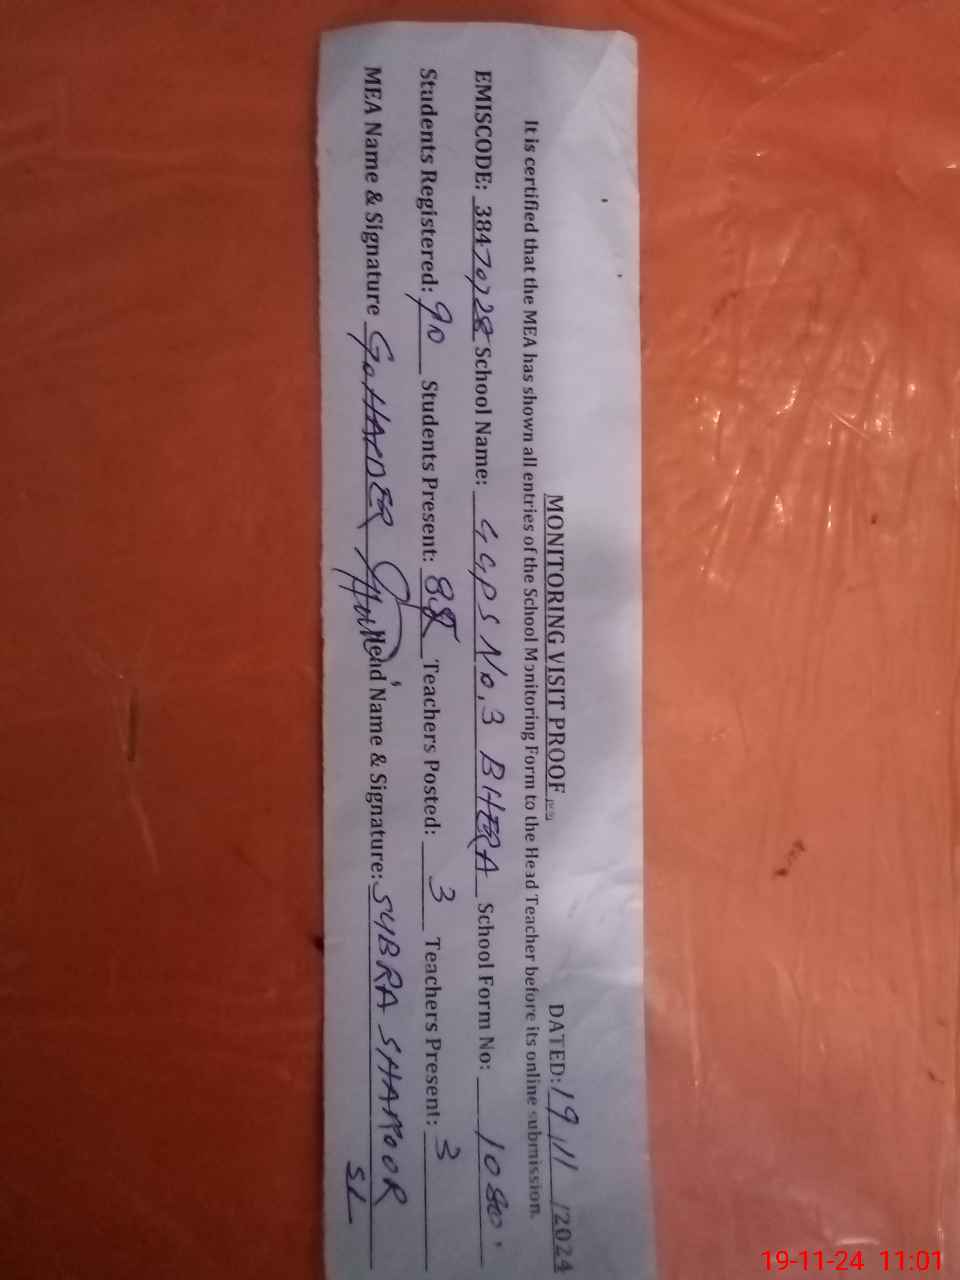 MONITORING VISIT PROOF DATED: 19/11/2024
It is certified that the MEA has shown all entries of the School Monitoring Form to the Head Teacher before its online submission.
EMISCODE: 38470728 School Name: GGPS No.3 BHERA School Form No: 1080
Students Registered: 90 Students Present: 88 Teachers Posted: 3 Teachers Present: 3
MEA Name & Signature Head Name & Signature: SYBRA
19-11-24 11:01